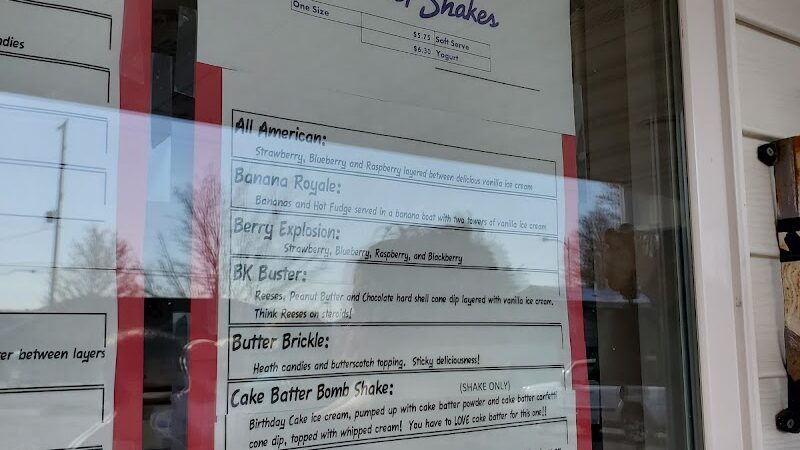 Shakes
One Size
$5.75 Soft Serve
$6.30 Yogurt
ndies
All American:
Strawberry, Blueberry and Raspberry layered between delicious vanilla ice cream
Banana Royale:
Bananas and Hot Fudge served in a banana boat with two towers of vanilla ice cream
Berry Explosion:
Strawberry, Blueberry, Raspberry, and Blackberry
BK Buster:
Reeses, Peanut Butter and Chocolate hard shell cone dip layered with vanilla ice cream.
Think Reeses on steroids!
er between layers
Butter Brickle:
Heath candies and butterscotch topping. Sticky deliciousness!
Cake Batter Bomb Shake: (SHAKE ONLY)
Birthday Cake ice cream, pumped up with cake batter powder and cake batter confetti
cone dip, topped with whipped cream! You have to LOVE cake batter for this one!!